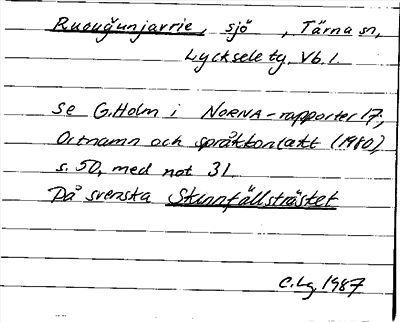 Ruovğunjavrie, sjö, Tärna sn,
Lycksele tg. Vb. l.
se G. Holm i NORNA-rapporter 17,
Ortnamn och språkkontakt (1980),
s. 50, med not 31.
På svenska Skinnfällsträsket
C. Lg. 1987